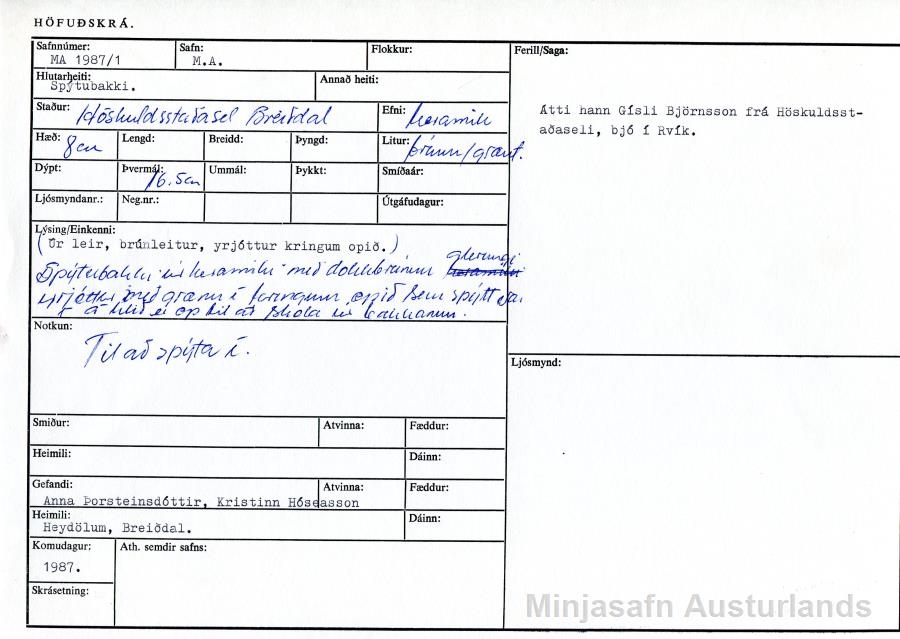 HÖFUÐSKRÁ.
Safnnúmer: Safn: Flokkur: Ferill/Saga:
MA 1987/1 M.A.
Hlutarheiti: Annað heiti:
Spýtubakki.
Staður: Höskuldsstaðasel Breiðdal Efni: keramik
Átti hann Gísli Björnsson frá Höskuldsst-
aðaseli, bjó í Rvík.
Hæð: 8cm Lengd: Breidd: Þyngd: Litur: brúnn/grænt.
Dýpt: Þvermál: 16.5cm Ummál: Þykkt: Smíðaár:
Ljósmyndanr.: Neg.nr.: Útgáfudagur:
Lýsing/Einkenni:
(Úr leir, brúnleitur, yrjóttur kringum opið.)
glerungi
Spýtubakki úr keramiki með dökkbrúnum
yrjóttu með grænu í kringum opið sem spýtt var
í á hlið er op til að skola úr bakkanum.
Notkun:
Til að spýta í.
Ljósmynd:
Smiður: Atvinna: Fæddur:
Heimili: Dáinn:
Gefandi: Atvinna: Fæddur:
Anna Þorsteinsdóttir, Kristinn Hóseasson
Heimili: Dáinn:
Heydölum, Breiðdal.
Komudagur: Ath. semdir safns:
1987.
Skrásetning:
Minjasafn Austurlands